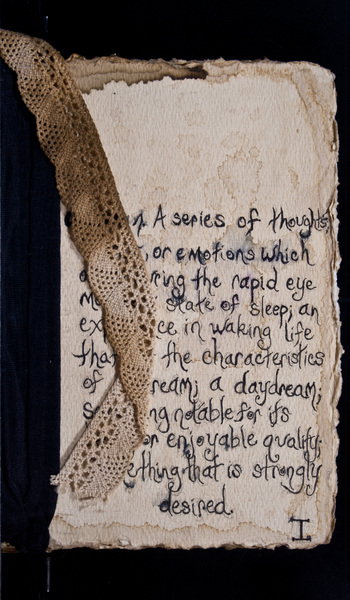 A series of thoughts,
or emotions which
the rapid eye
state of sleep; an
in waking life
the characteristics
of a daydream;
notable for its
or enjoyable quality;
that is strongly
desired.
I